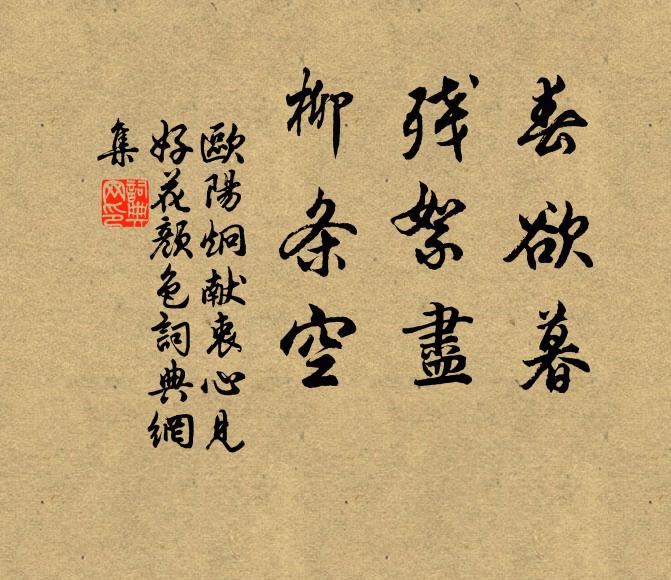 春欲暮
残絮盡
柳条空
歐陽炯献衷心見
好花顔色詞典網
集
詞典
网印